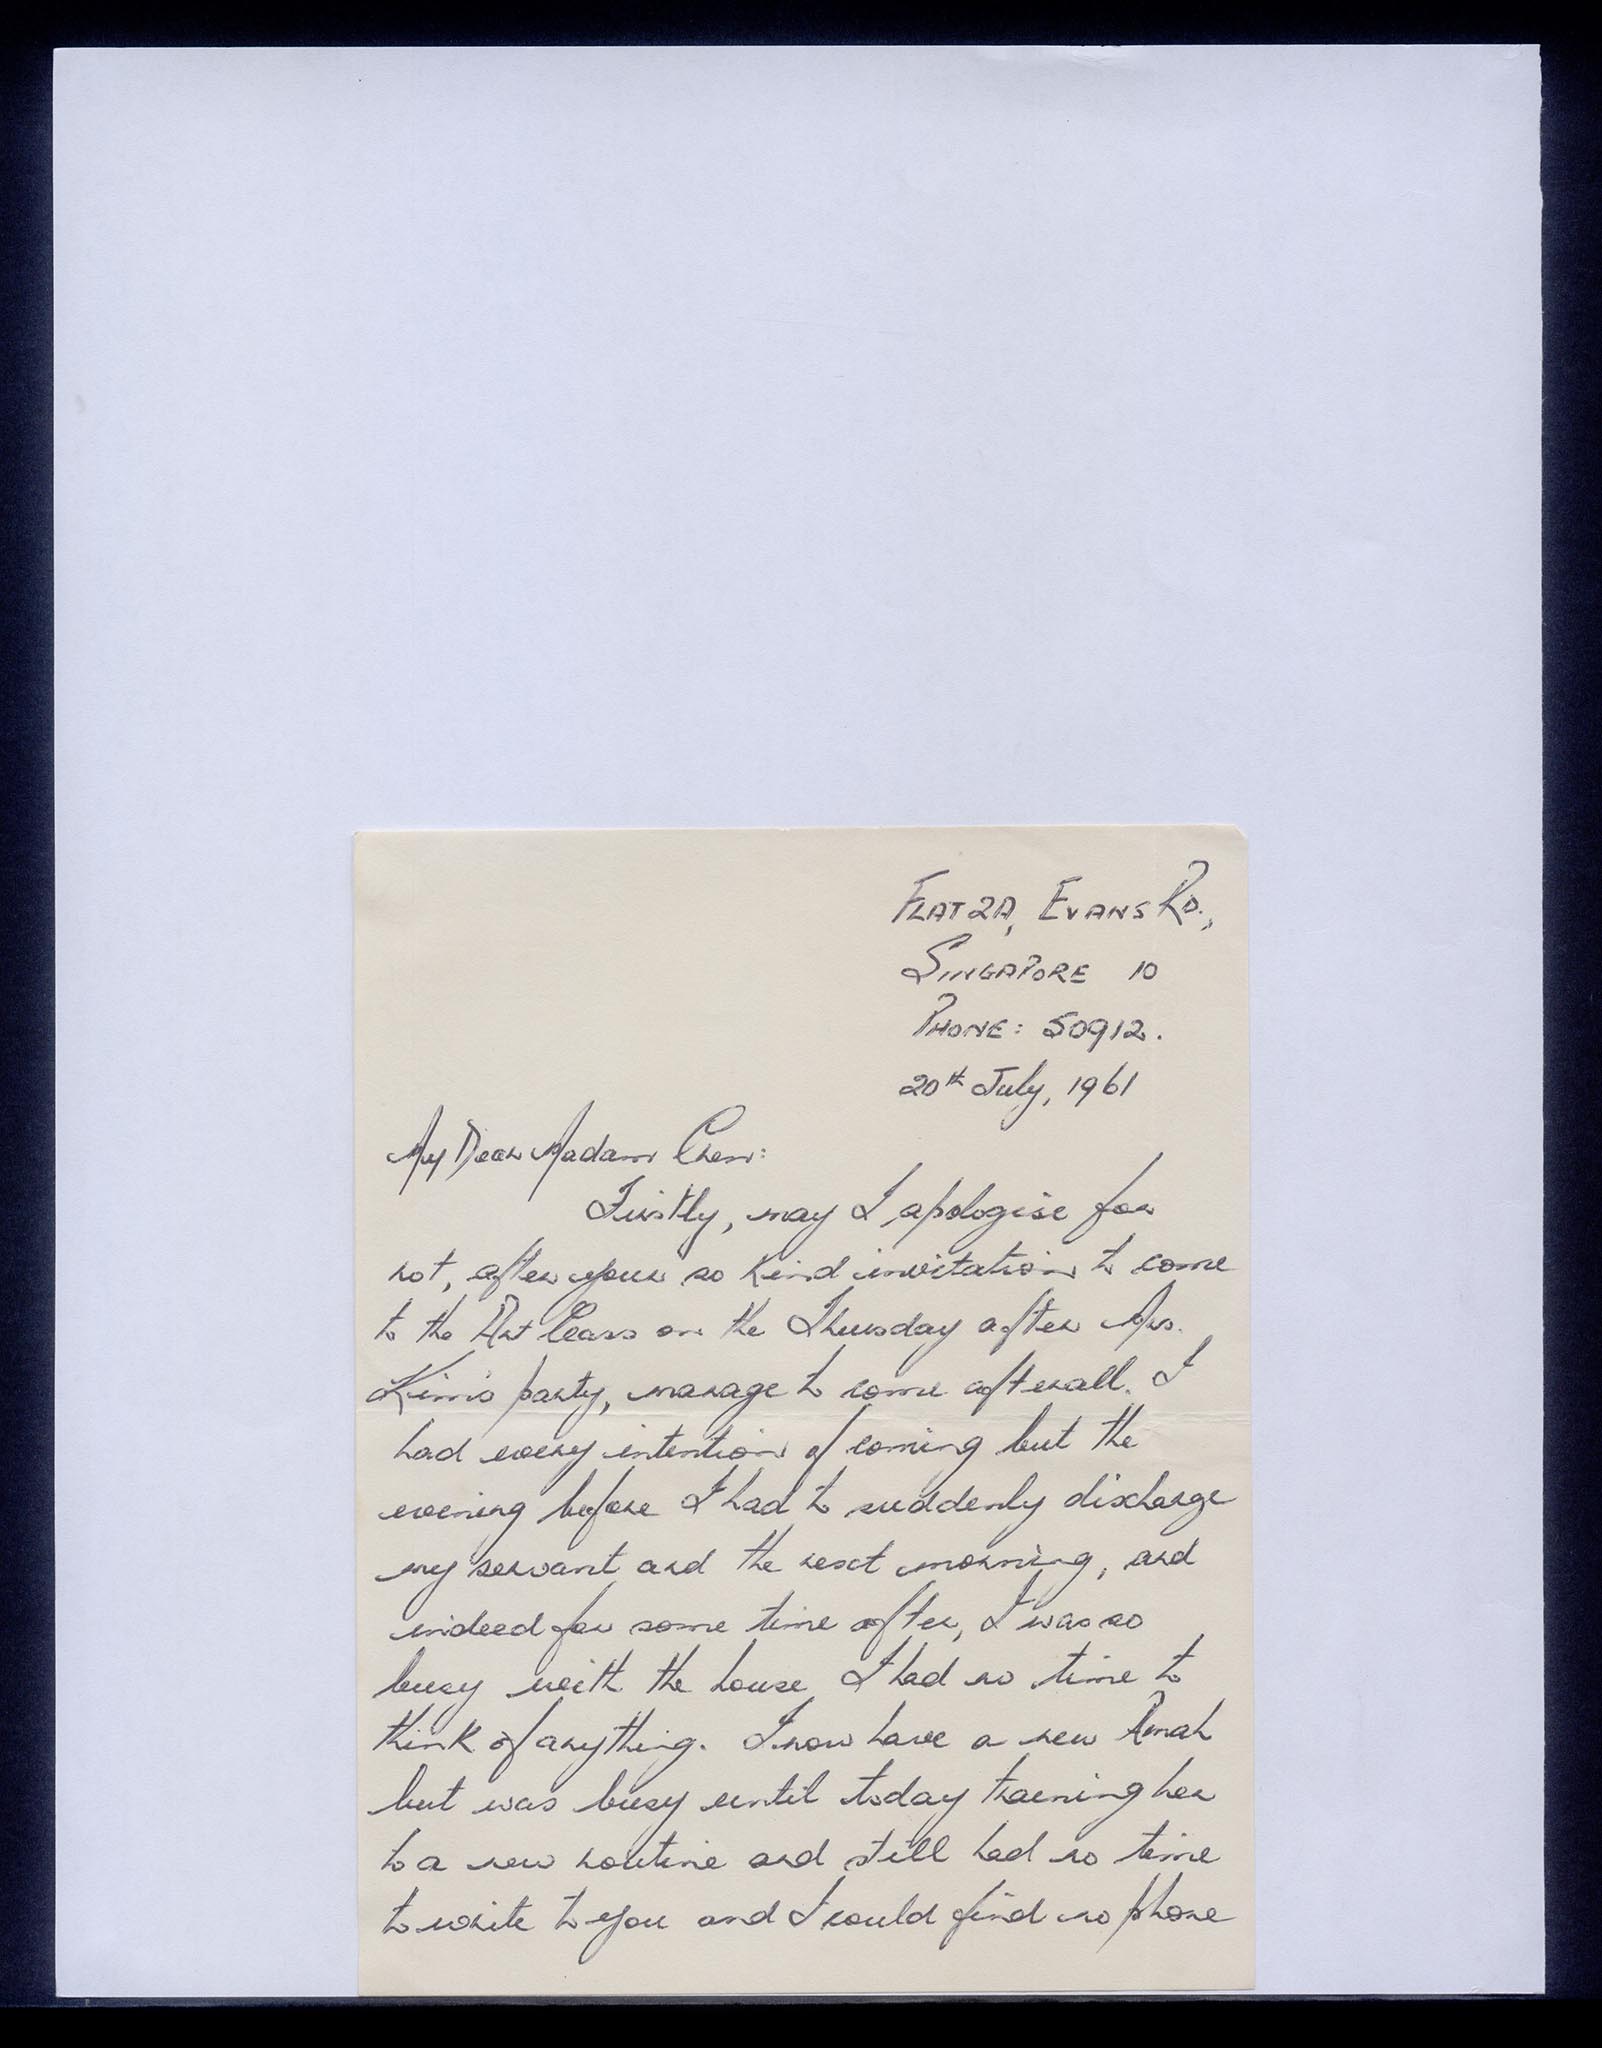 FLAT 2A, EVANS RD.,
SINGAPORE 10
PHONE: 50912.
20th July, 1961
My Dear Madam Chen:
Firstly, may I apologise for
not, after your so kind invitation to come
to the Art Class on the Thursday after Mrs.
Kim's party, manage to come afterall. I
had every intention of coming but the
evening before I had to suddenly discharge
my servant and the next morning, and
indeed for some time after, I was so
busy with the house I had no time to
think of anything. I now have a new Amah
but was busy until today training her
to a new routine and still had no time
to write to you and I could find no phone